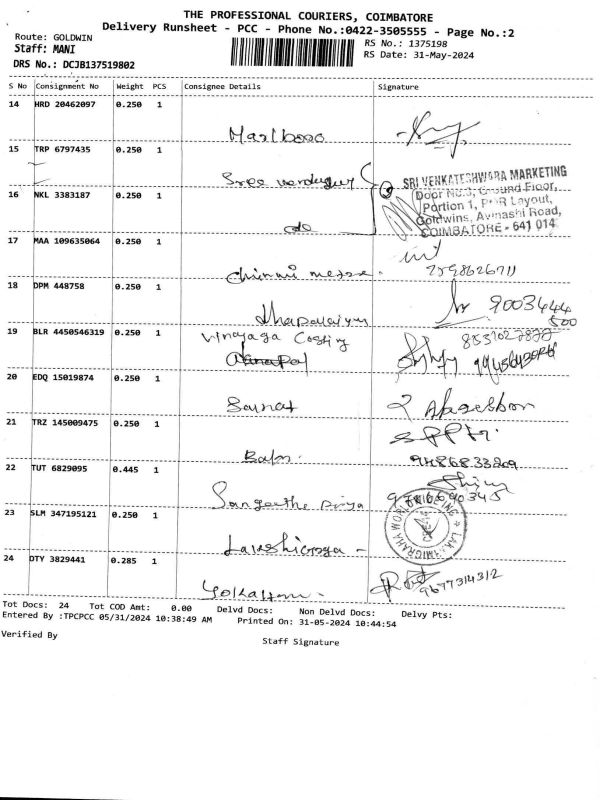 THE PROFESSIONAL COURIERS, COIMBATORE
Delivery Runsheet - PCC - Phone No.:0422-3505555 - Page No.:2
Route: GOLDWIN
RS No.: 1375198
Staff: MANI
RS Date: 31-May-2024
DRS No.: DCJB137519802
S No Consignment No Weight PCS Consignee Details Signature
14 HRD 20462097 0.250 1
Marlboro
15 TRP 6797435 0.250 1
Sree
SRI VENKATESHWARA MARKETING
Door No.3, Ground Floor,
16 NKL 3383187 0.250 1
Portion 1, PGR Layout,
Goldwins, Avinashi Road,
do COIMBATORE - 641 014
17 MAA 109635064 0.250 1
Chinni 7598626711
18 DPM 448758 0.250 1
9003444
500
19 BLR 4450546319 0.250 1
Vinayaga
20 EDQ 15019874 0.250 1
21 TRZ 145009475 0.250 1
9486833209
22 TUT 6829095 0.445 1
Sangeetha Priya
23 SLM 347195121 0.250 1
24 DTY 3829441 0.285 1
9677314312
Tot Docs: 24 Tot COD Amt: 0.00 Delvd Docs: Non Delvd Docs: Delvy Pts:
Entered By :TPCPCC 05/31/2024 10:38:49 AM Printed On: 31-05-2024 10:44:54
Verified By
Staff Signature